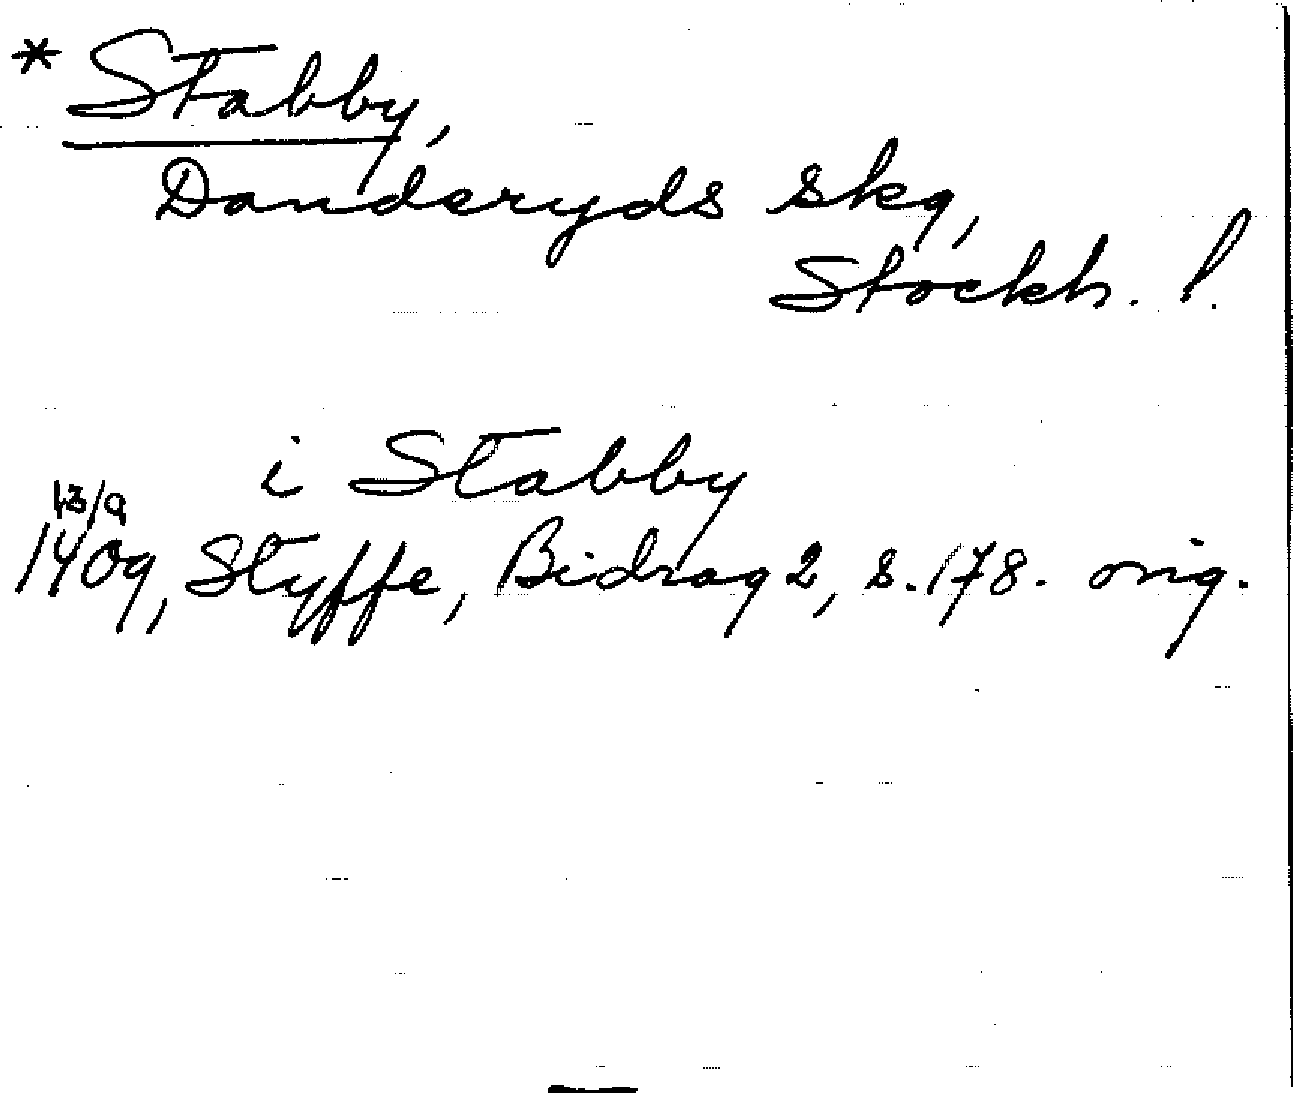 * Stabby,
Danderyds skg,
Stockh. l.
i Stabby
13/9
1409, Styffe, Bidrag 2, s. 178. orig.